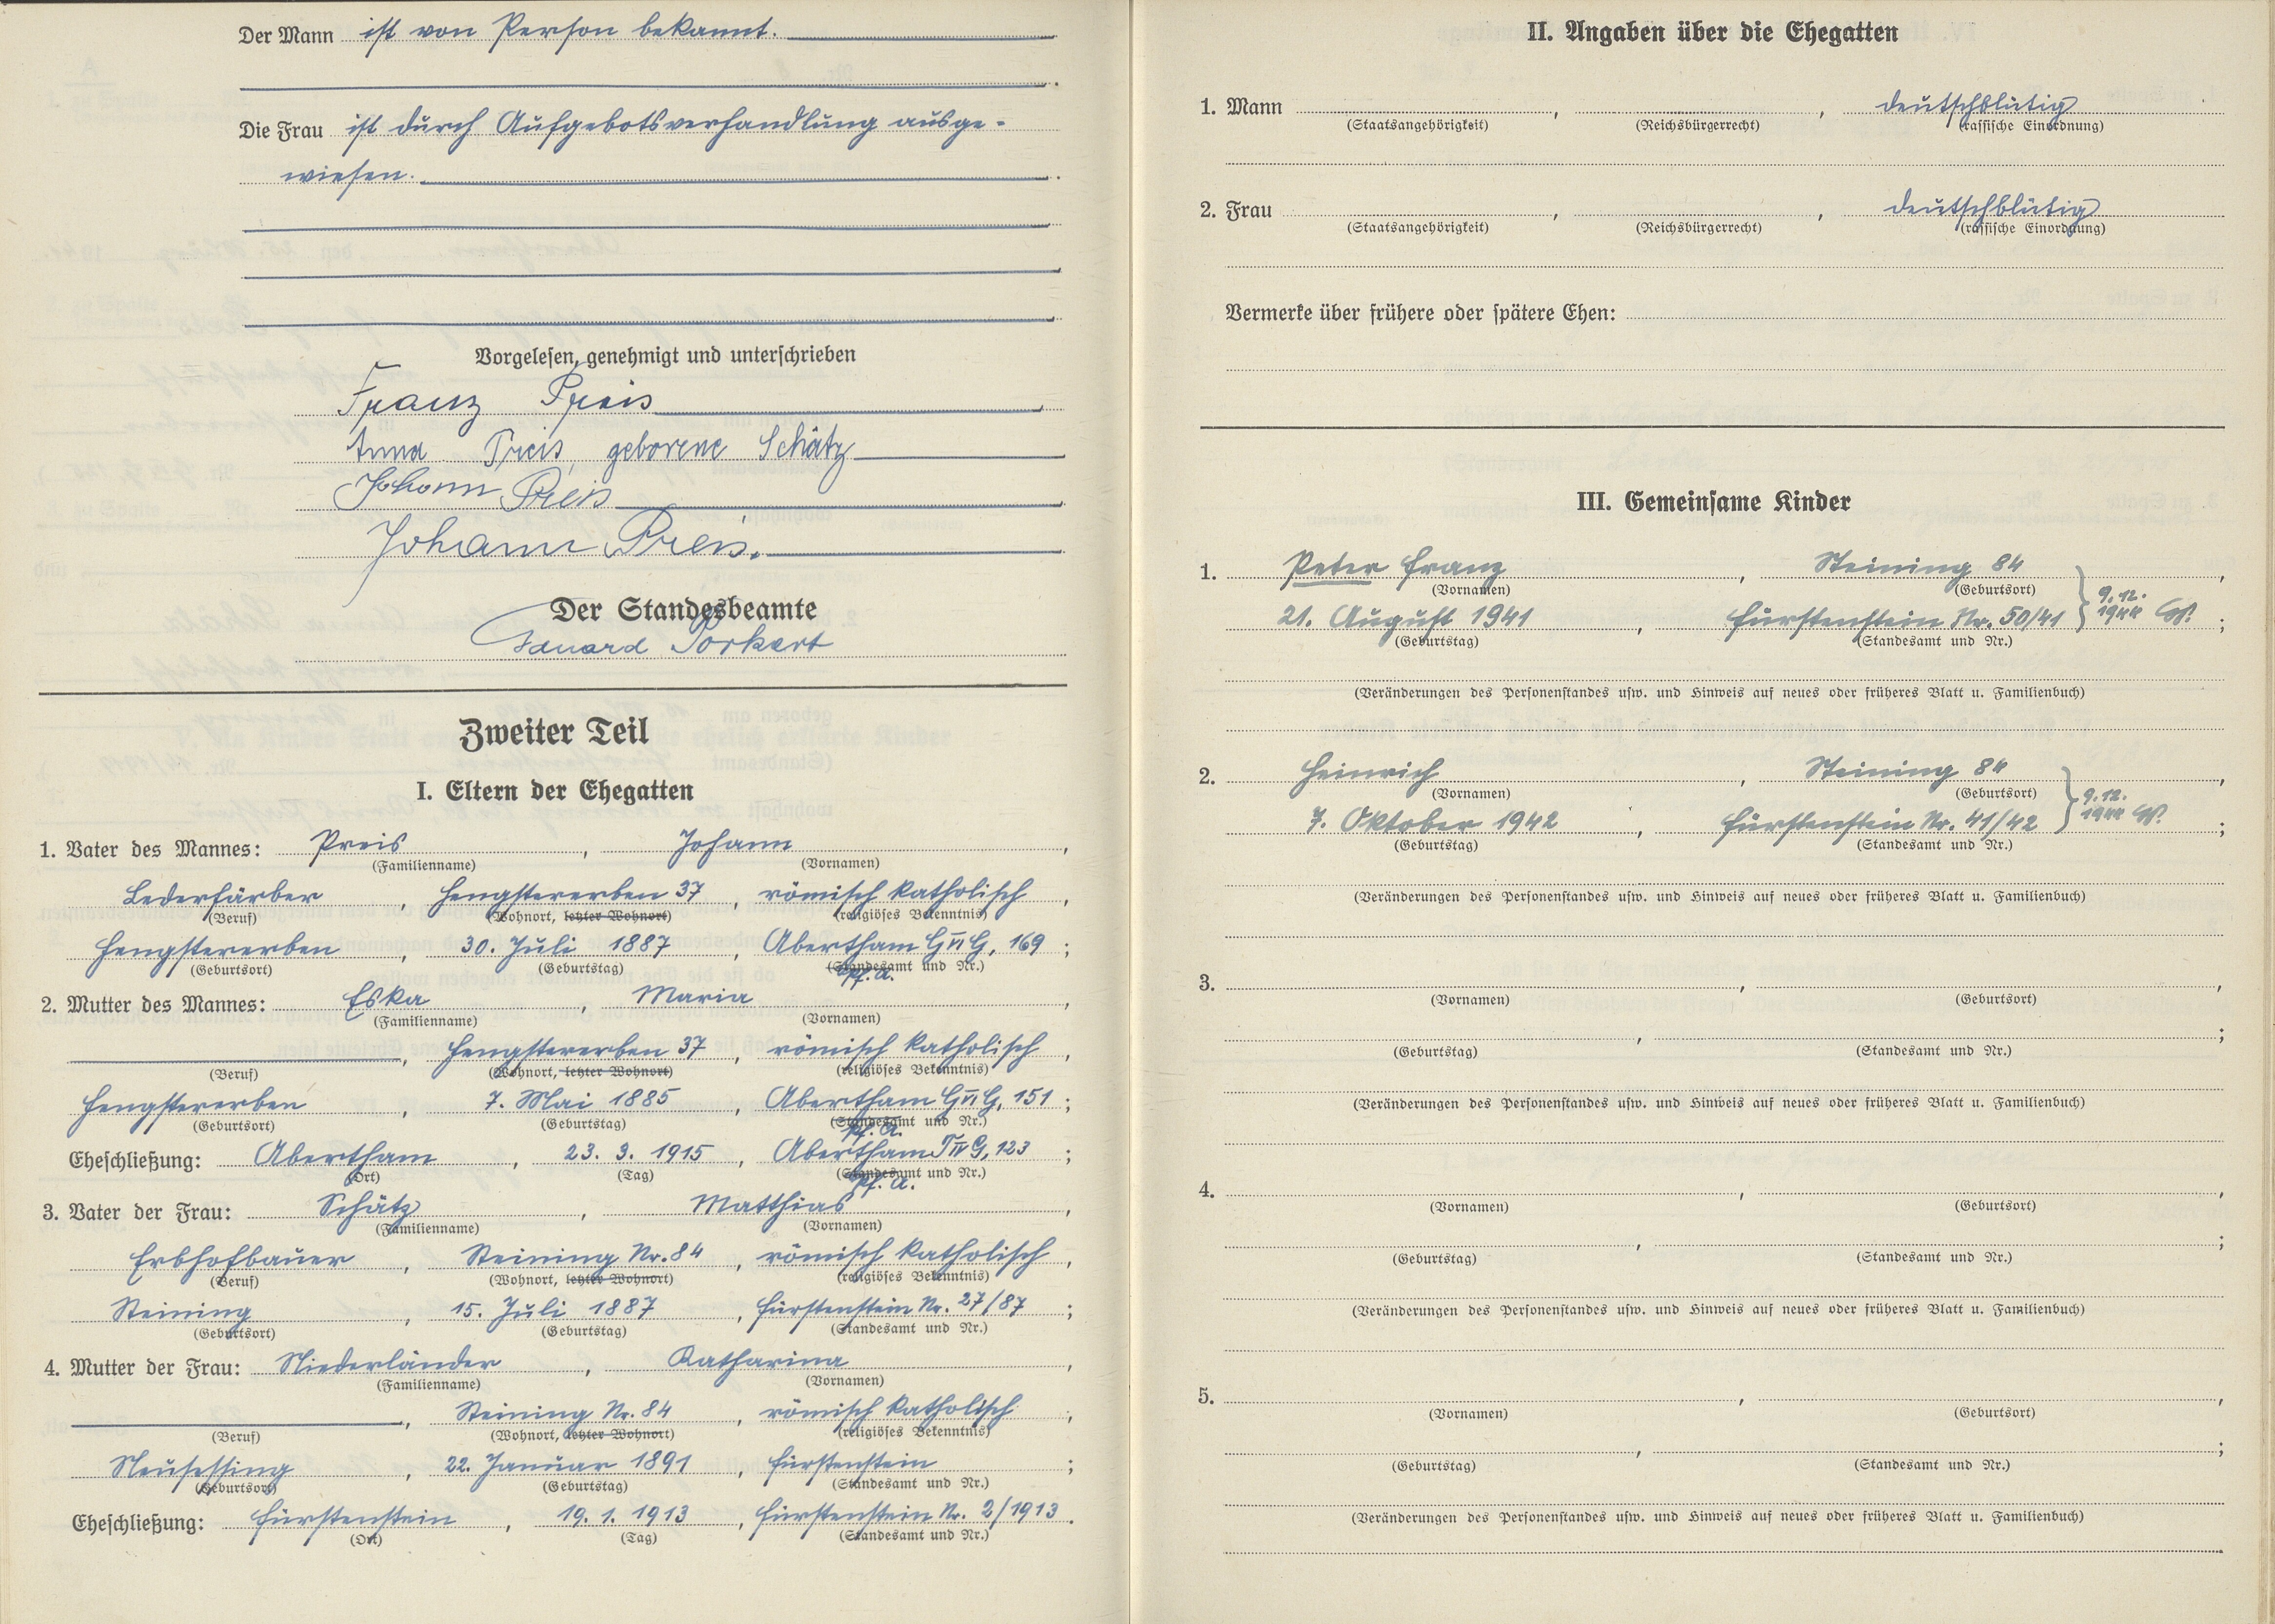 Der Mann ist von Person bekannt.
Die Frau ist durch Aufgebotsverhandlung ausge-
wiesen.
Vorgelesen, genehmigt und unterschrieben
Franz Preis
Anna Preis, geborene Schätz
Johann Preis
Johann Preis.
Der Standesbeamte
Eduard Porkert
Zweiter Teil
I. Eltern der Ehegatten
1. Vater des Mannes: Preis, Johann,
(Familienname) (Vornamen)
Lederfärber, Hengstererben 37, römisch katholisch,
(Beruf) (Wohnort, letzter Wohnort) (religiöses Bekenntnis)
Hengstererben, 30. Juli 1887, Abertham G VI G, 169;
(Geburtsort) (Geburtstag) (Standesamt und Nr.)
Pf. A.
2. Mutter des Mannes: Eska, Maria,
(Familienname) (Vornamen)
, Hengstererben 37, römisch katholisch,
(Beruf) (Wohnort, letzter Wohnort) (religiöses Bekenntnis)
Hengstererben, 7. Mai 1885, Abertham G VI G, 151;
(Geburtsort) (Geburtstag) (Standesamt und Nr.)
Pf. A.
Eheschließung: Abertham, 23. 3. 1915, Abertham T IV G, 123;
(Ort) (Tag) (Standesamt und Nr.)
Pf. A.
3. Vater der Frau: Schätz, Matthias,
(Familienname) (Vornamen)
Erbhofbauer, Steining Nr. 84, römisch katholisch,
(Beruf) (Wohnort, letzter Wohnort) (religiöses Bekenntnis)
Steining, 15. Juli 1887, Fürstenstein Nr. 27/87;
(Geburtsort) (Geburtstag) (Standesamt und Nr.)
4. Mutter der Frau: Niederländer, Katharina,
(Familienname) (Vornamen)
, Steining Nr. 84, römisch katholisch,
(Beruf) (Wohnort, letzter Wohnort) (religiöses Bekenntnis)
Neusessing, 22. Januar 1891, Fürstenstein;
(Geburtsort) (Geburtstag) (Standesamt und Nr.)
Eheschließung: Fürstenstein, 19. 1. 1913, Fürstenstein Nr. 2/1913.
(Ort) (Tag) (Standesamt und Nr.)
II. Angaben über die Ehegatten
1. Mann , , deutschblütig
(Staatsangehörigkeit) (Reichsbürgerrecht) (rassische Einordnung)
2. Frau , , deutschblütig
(Staatsangehörigkeit) (Reichsbürgerrecht) (rassische Einordnung)
Vermerke über frühere oder spätere Ehen:
III. Gemeinsame Kinder
1. Peter Franz, Steining 84,
(Vornamen) (Geburtsort)
21. August 1941, Fürstenstein Nr. 50/41 } 9. 12. 1944 W.;
(Geburtstag) (Standesamt und Nr.)
(Veränderungen des Personenstandes usw. und Hinweis auf neues oder früheres Blatt u. Familienbuch)
2. Heinrich, Steining 84,
(Vornamen) (Geburtsort)
7. Oktober 1942, Fürstenstein Nr. 41/42 } 9. 12. 1944 W.;
(Geburtstag) (Standesamt und Nr.)
(Veränderungen des Personenstandes usw. und Hinweis auf neues oder früheres Blatt u. Familienbuch)
3. , ,
(Vornamen) (Geburtsort)
, ;
(Geburtstag) (Standesamt und Nr.)
(Veränderungen des Personenstandes usw. und Hinweis auf neues oder früheres Blatt u. Familienbuch)
4. , ,
(Vornamen) (Geburtsort)
, ;
(Geburtstag) (Standesamt und Nr.)
(Veränderungen des Personenstandes usw. und Hinweis auf neues oder früheres Blatt u. Familienbuch)
5. , ,
(Vornamen) (Geburtsort)
, ;
(Geburtstag) (Standesamt und Nr.)
(Veränderungen des Personenstandes usw. und Hinweis auf neues oder früheres Blatt u. Familienbuch)